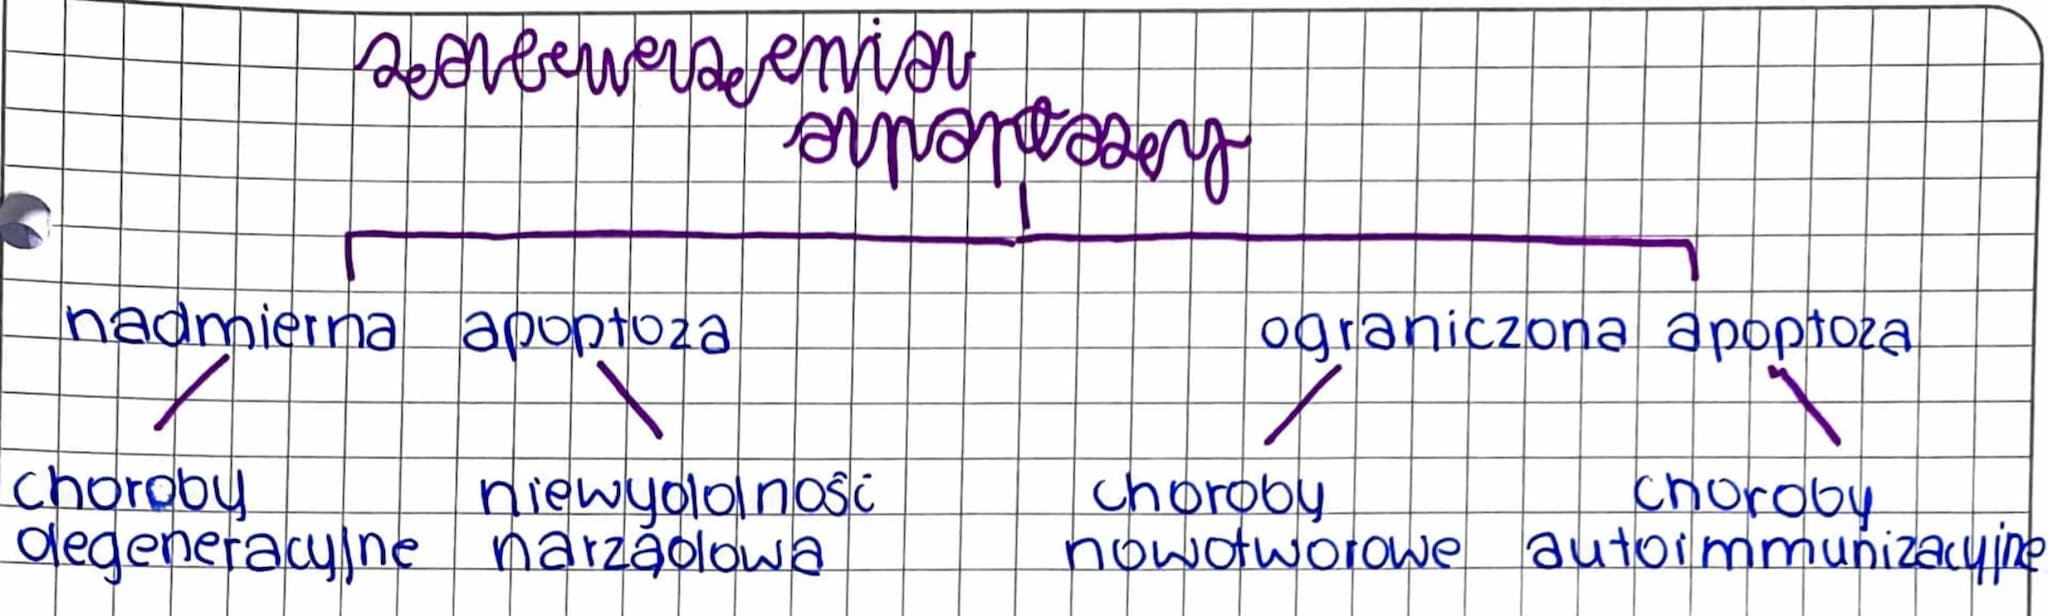 zaburzenia
apoptozy
nadmierna apoptoza ograniczona apoptoza
choroby niewydolność choroby choroby
degeneracyjne narządowa nowotworowe autoimmunizacyjne